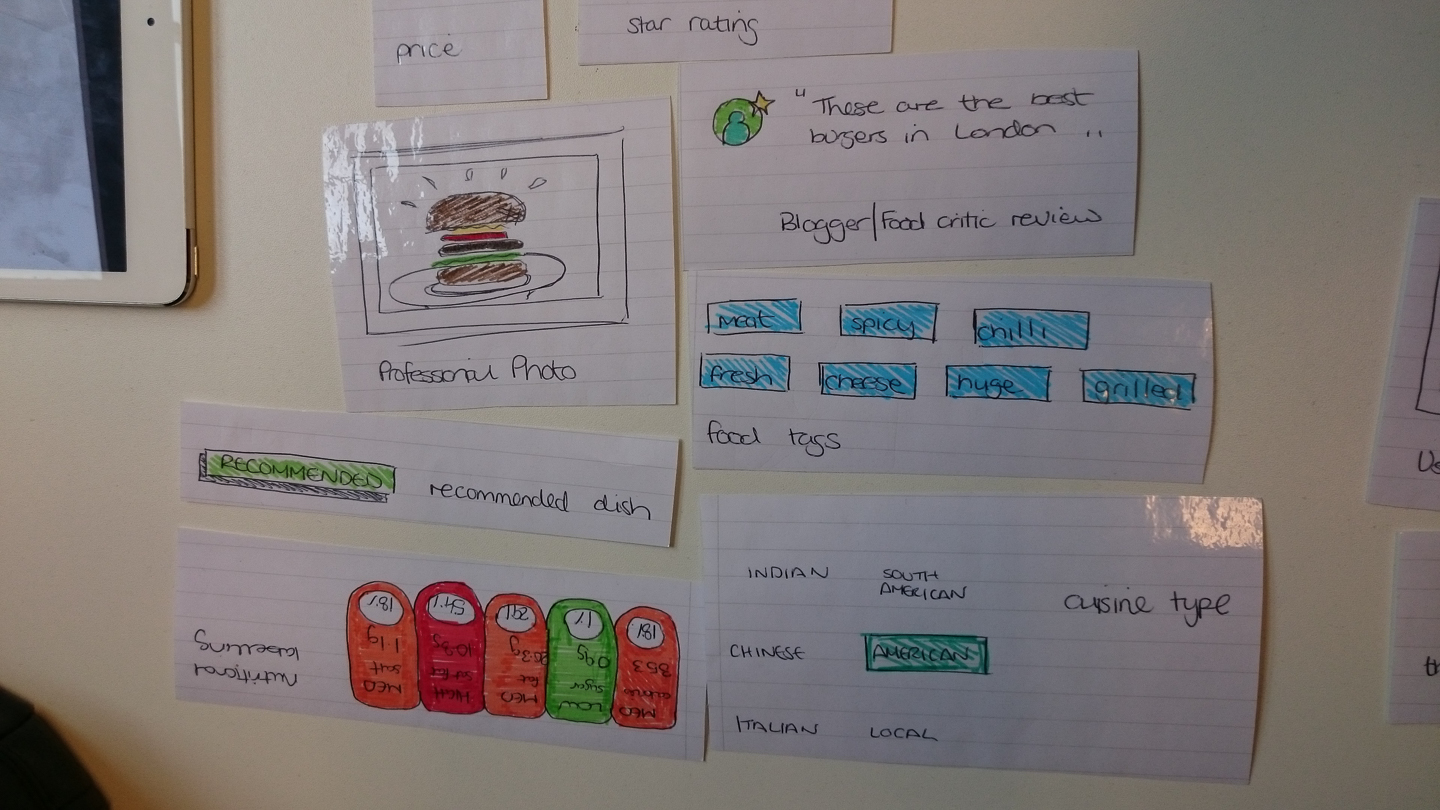 price
star rating
"These are the best
burgers in London ..
Blogger/Food critic review
Professional Photo
meat spicy chilli
fresh cheese huge grilled
food tags
RECOMMENDED recommended dish
Nutritional
labelling
MED
353
18%
LOW
sugar
0.9g
1%
MED
fat
29%
HIGH
sat fat
10.8g
54%
MED
salt
1.1g
18%
INDIAN SOUTH
AMERICAN
cuisine type
CHINESE AMERICAN
ITALIAN LOCAL